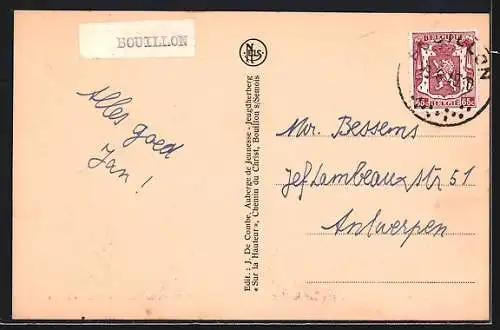 BOUILLON
NELS
BELGIQUE
65c 65c
BELGIE
Alles goed
Jan !
Edit. : J. De Combe, Auberge de Jeunesse - Jeugdherberg
« Sur la Hauteur », Chemin du Christ, Bouillon s/Semois
Mr. Bessems
Jef Lambeaux str 51
Antwerpen